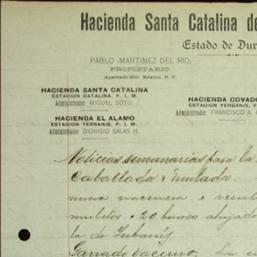 Hacienda Santa Catalina de
Estado de Dur
PABLO MARTINEZ DEL RIO,
PROPIETARIO.
Apartado 259 México, D. F.
HACIENDA SANTA CATALINA
ESTACION CATALINA. F. I. M.
Administrador MIGUEL SOTO.
HACIENDA COVADO
ESTACION YERBANIS, F. I. M
Administrador FRANCISCO A.
HACIENDA EL ALAMO
ESTACION YERBANIS, F. I. M.
Administrador DIONISIO SALAS H.
Noticias semanarias para la
Caballada & mulada
nueva
muletos & 20 burros
la de Yerbanis
Ganado Vacuno. La